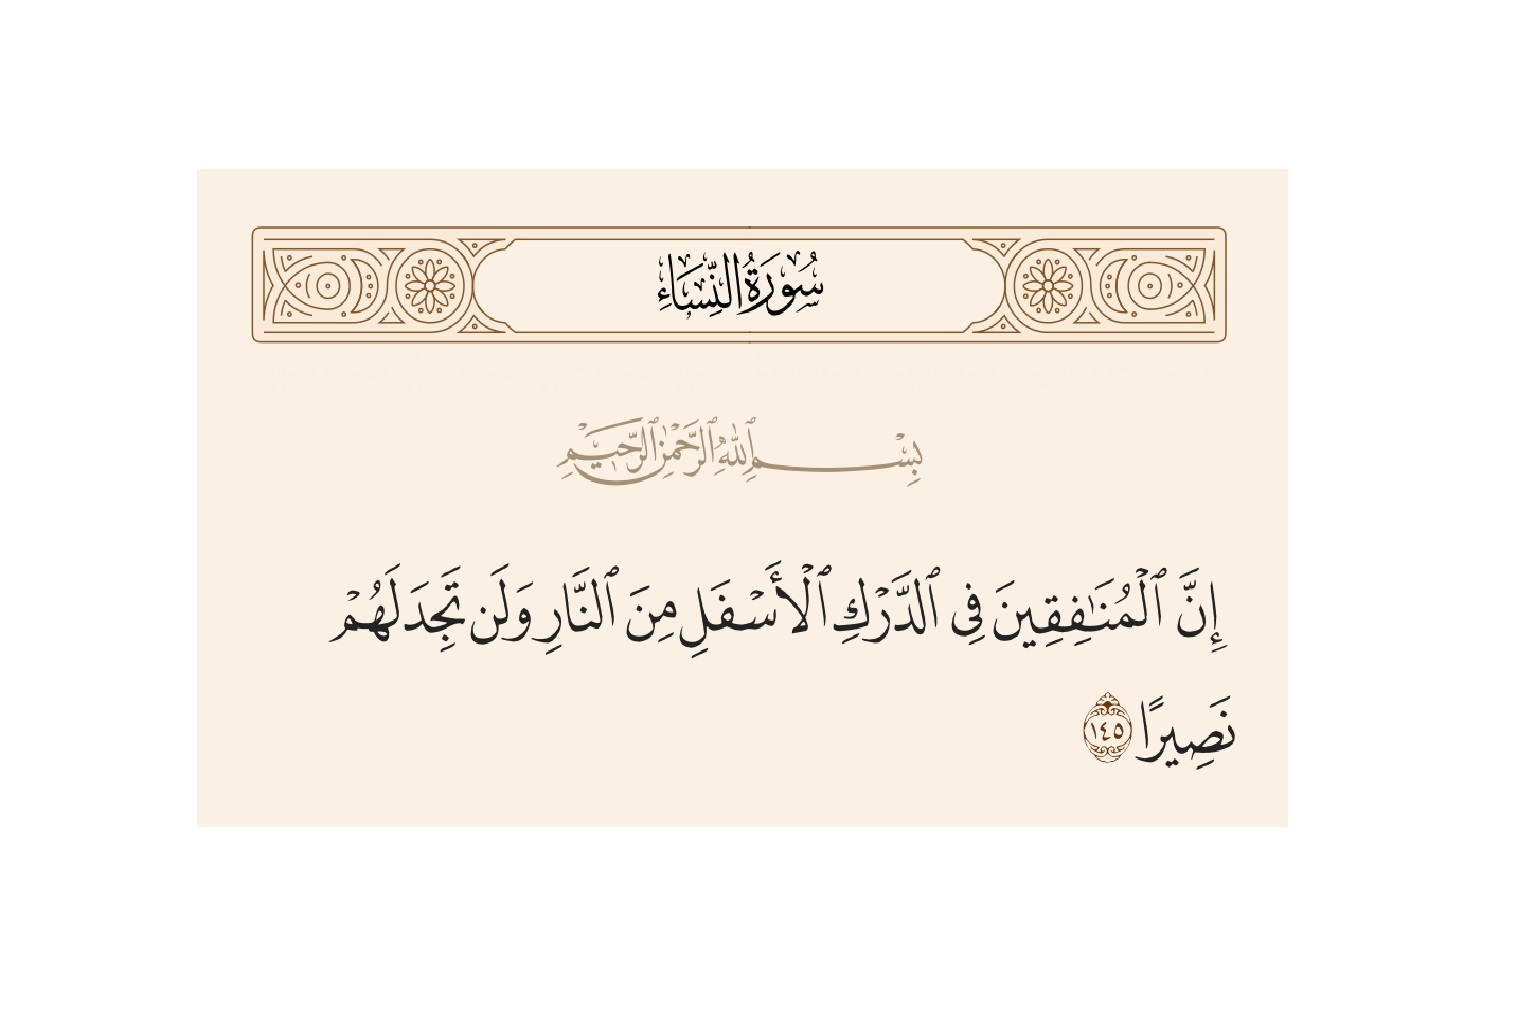 سُورَةُ النِّسَاءِ
بِسْمِ ٱللَّهِ ٱلرَّحْمَٰنِ ٱلرَّحِيمِ
إِنَّ ٱلْمُنَٰفِقِينَ فِى ٱلدَّرْكِ ٱلْأَسْفَلِ مِنَ ٱلنَّارِ وَلَن تَجِدَ لَهُمْ
نَصِيرًا ١٤٥